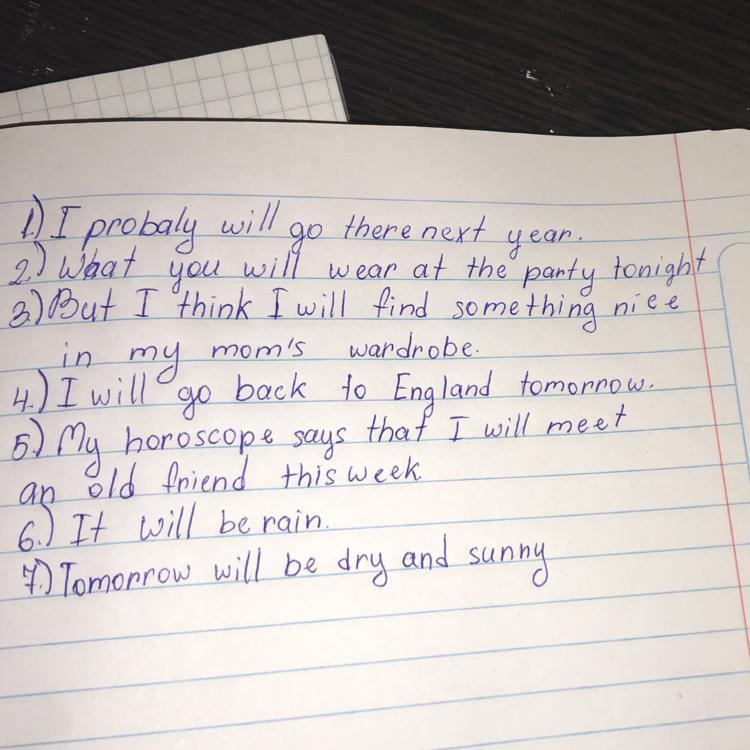 1.) I probaly will go there next year.
2.) What you will wear at the party tonight
3.) But I think I will find something nice
in my mom's wardrobe.
4.) I will go back to England tomorrow.
5.) My horoscope says that I will meet
an old friend this week
6.) It will be rain.
7.) Tomorrow will be dry and sunny